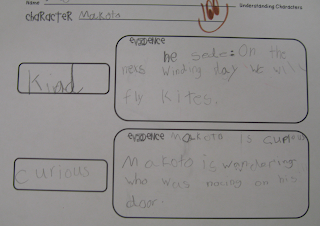 Name
Understanding Characters
100
character Makoto
Kind
evidence
he sede: On the
next winding day we will
fly kites.
Curious
evidence Makoto is curious
Makoto is wondering
who was nocing on his
door.